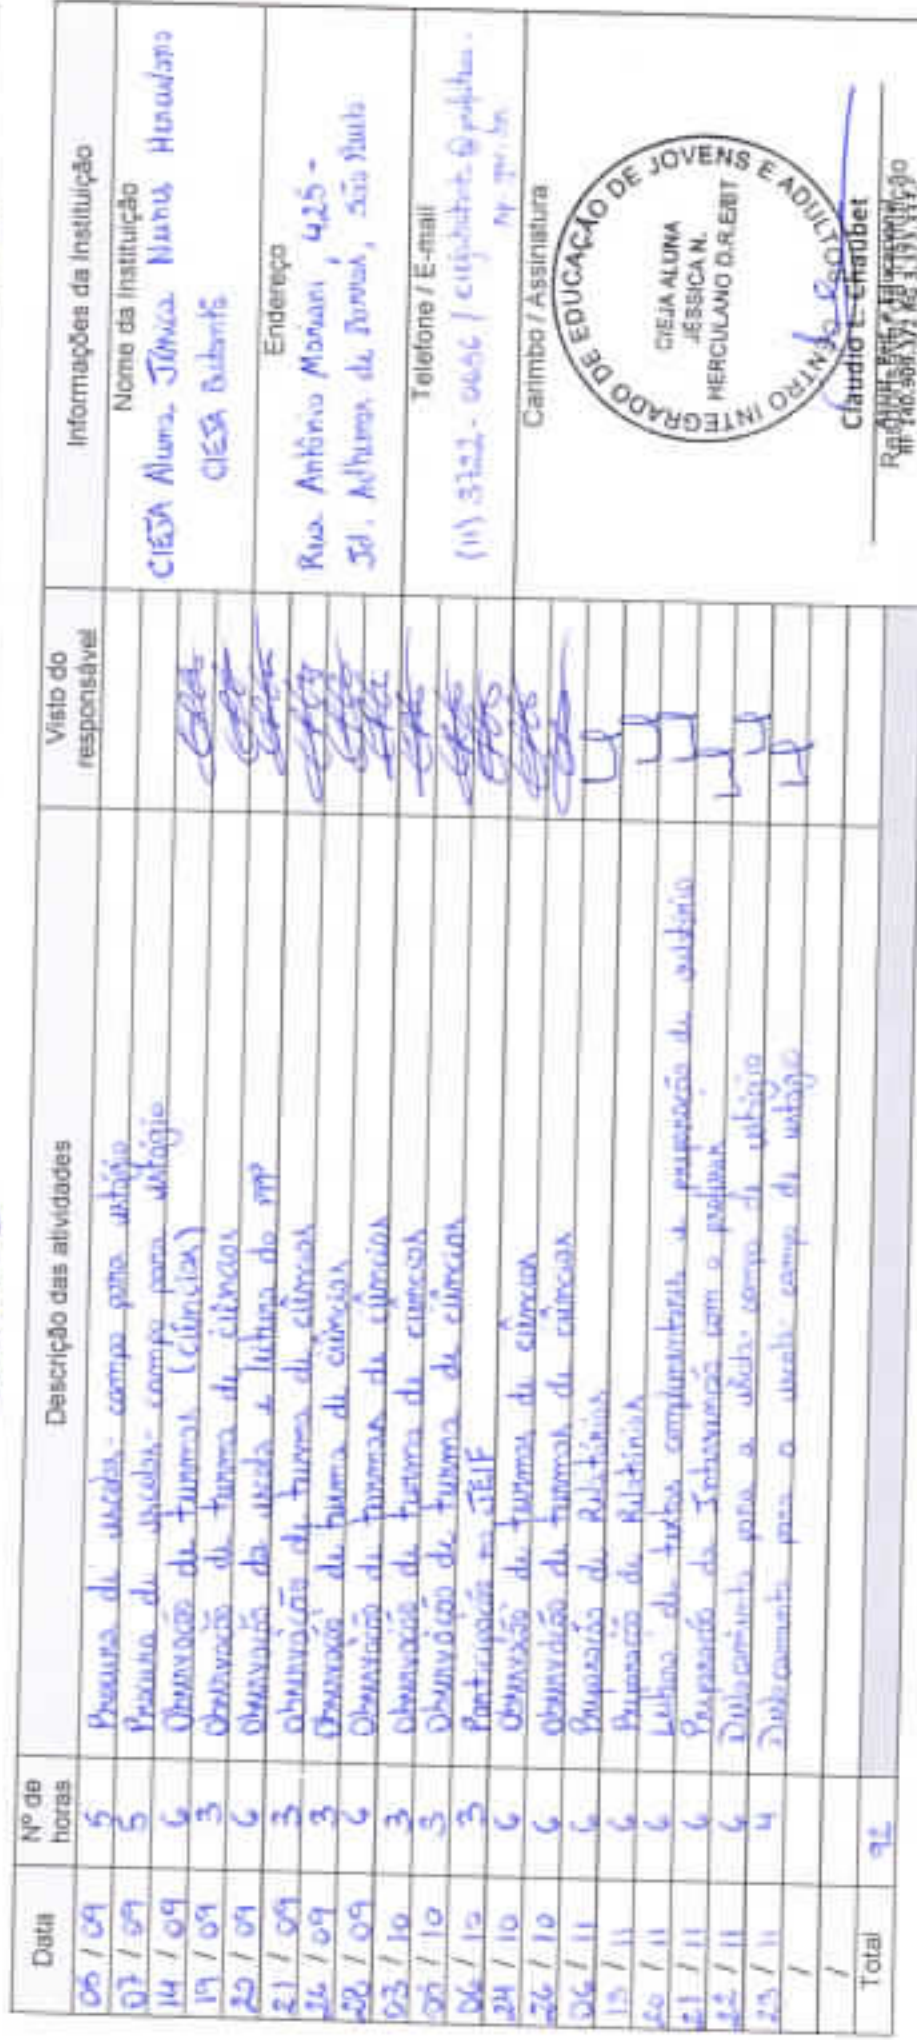 Data Nº de horas Descrição das atividades Visto do responsável Informações da Instituição
05 / 09 5 Procura de escolas-campo para estágio
07 / 09 5 Procura de escolas-campo para estágio
14 / 09 6 Observação de turmas (ciências)
19 / 09 3 Observação de turma de ciências
20 / 09 6 Observação da escola e leitura do PPP
21 / 09 3 Observação de turma de ciências
26 / 09 3 Observação de turma de ciências
28 / 09 6 Observação de turmas de ciências
03 / 10 3 Observação de turma de ciências
05 / 10 3 Observação de turma de ciências
06 / 10 3 Participação na JEIF
24 / 10 6 Observação de turmas de ciências
26 / 10 6 Observação de turmas de ciências
06 / 11 6 Preparação de Relatórios
13 / 11 6 Preparação de Relatórios
20 / 11 6 Leitura de textos complementares e preparação de relatório
21 / 11 6 Preparação da Intervenção com o professor
22 / 11 6 Deslocamento para a escola-campo de estágio
23 / 11 4 Deslocamento para a escola-campo de estágio
/
/
Total 92
Nome da Instituição
CIEJA Aluna Jéssica Nunes Herculano
CIEJA Butantã
Endereço
Rua Antônio Mariani, 425 -
Jd. Adhemar de Barros, São Paulo
Telefone / E-mail
(11) 3722-
Carimbo / Assinatura
CENTRO INTEGRADO DE EDUCAÇÃO DE JOVENS E ADULTOS
CIEJA ALUNA
JÉSSICA N.
HERCULANO D.R.E/BT
Claudio L. Chaubet